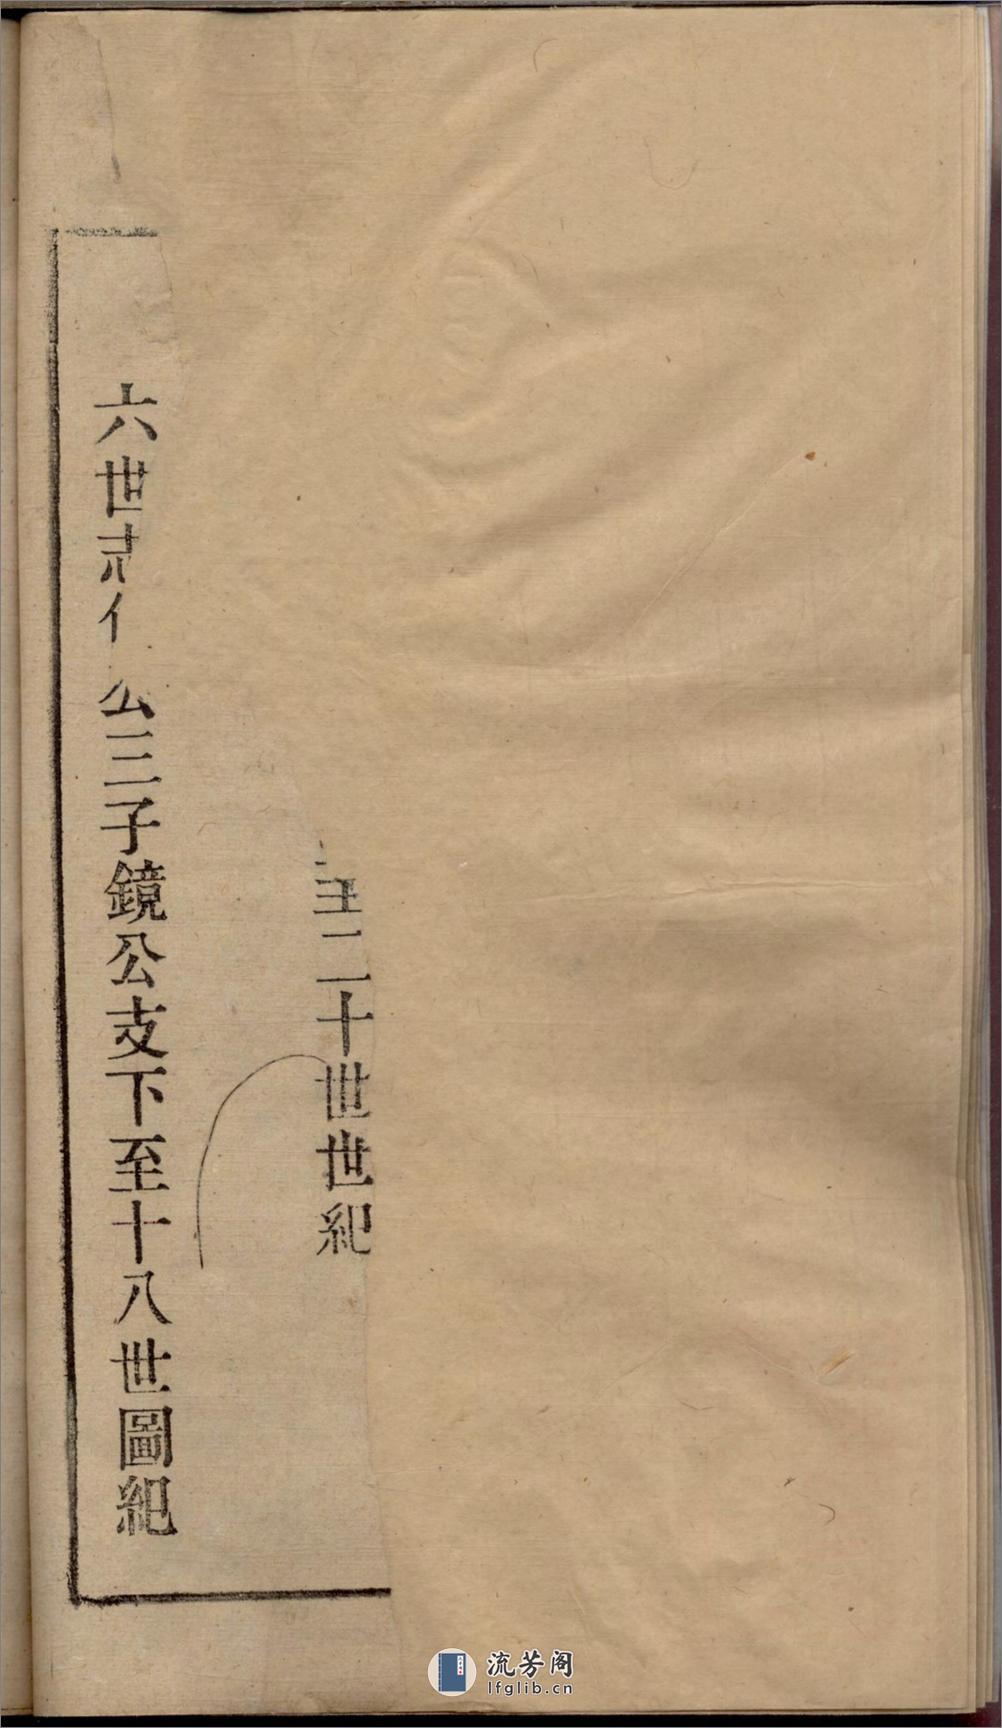 至二十世世紀
六世公三子鏡公支下至十八世圖紀
流芳阁
lfglib.cn